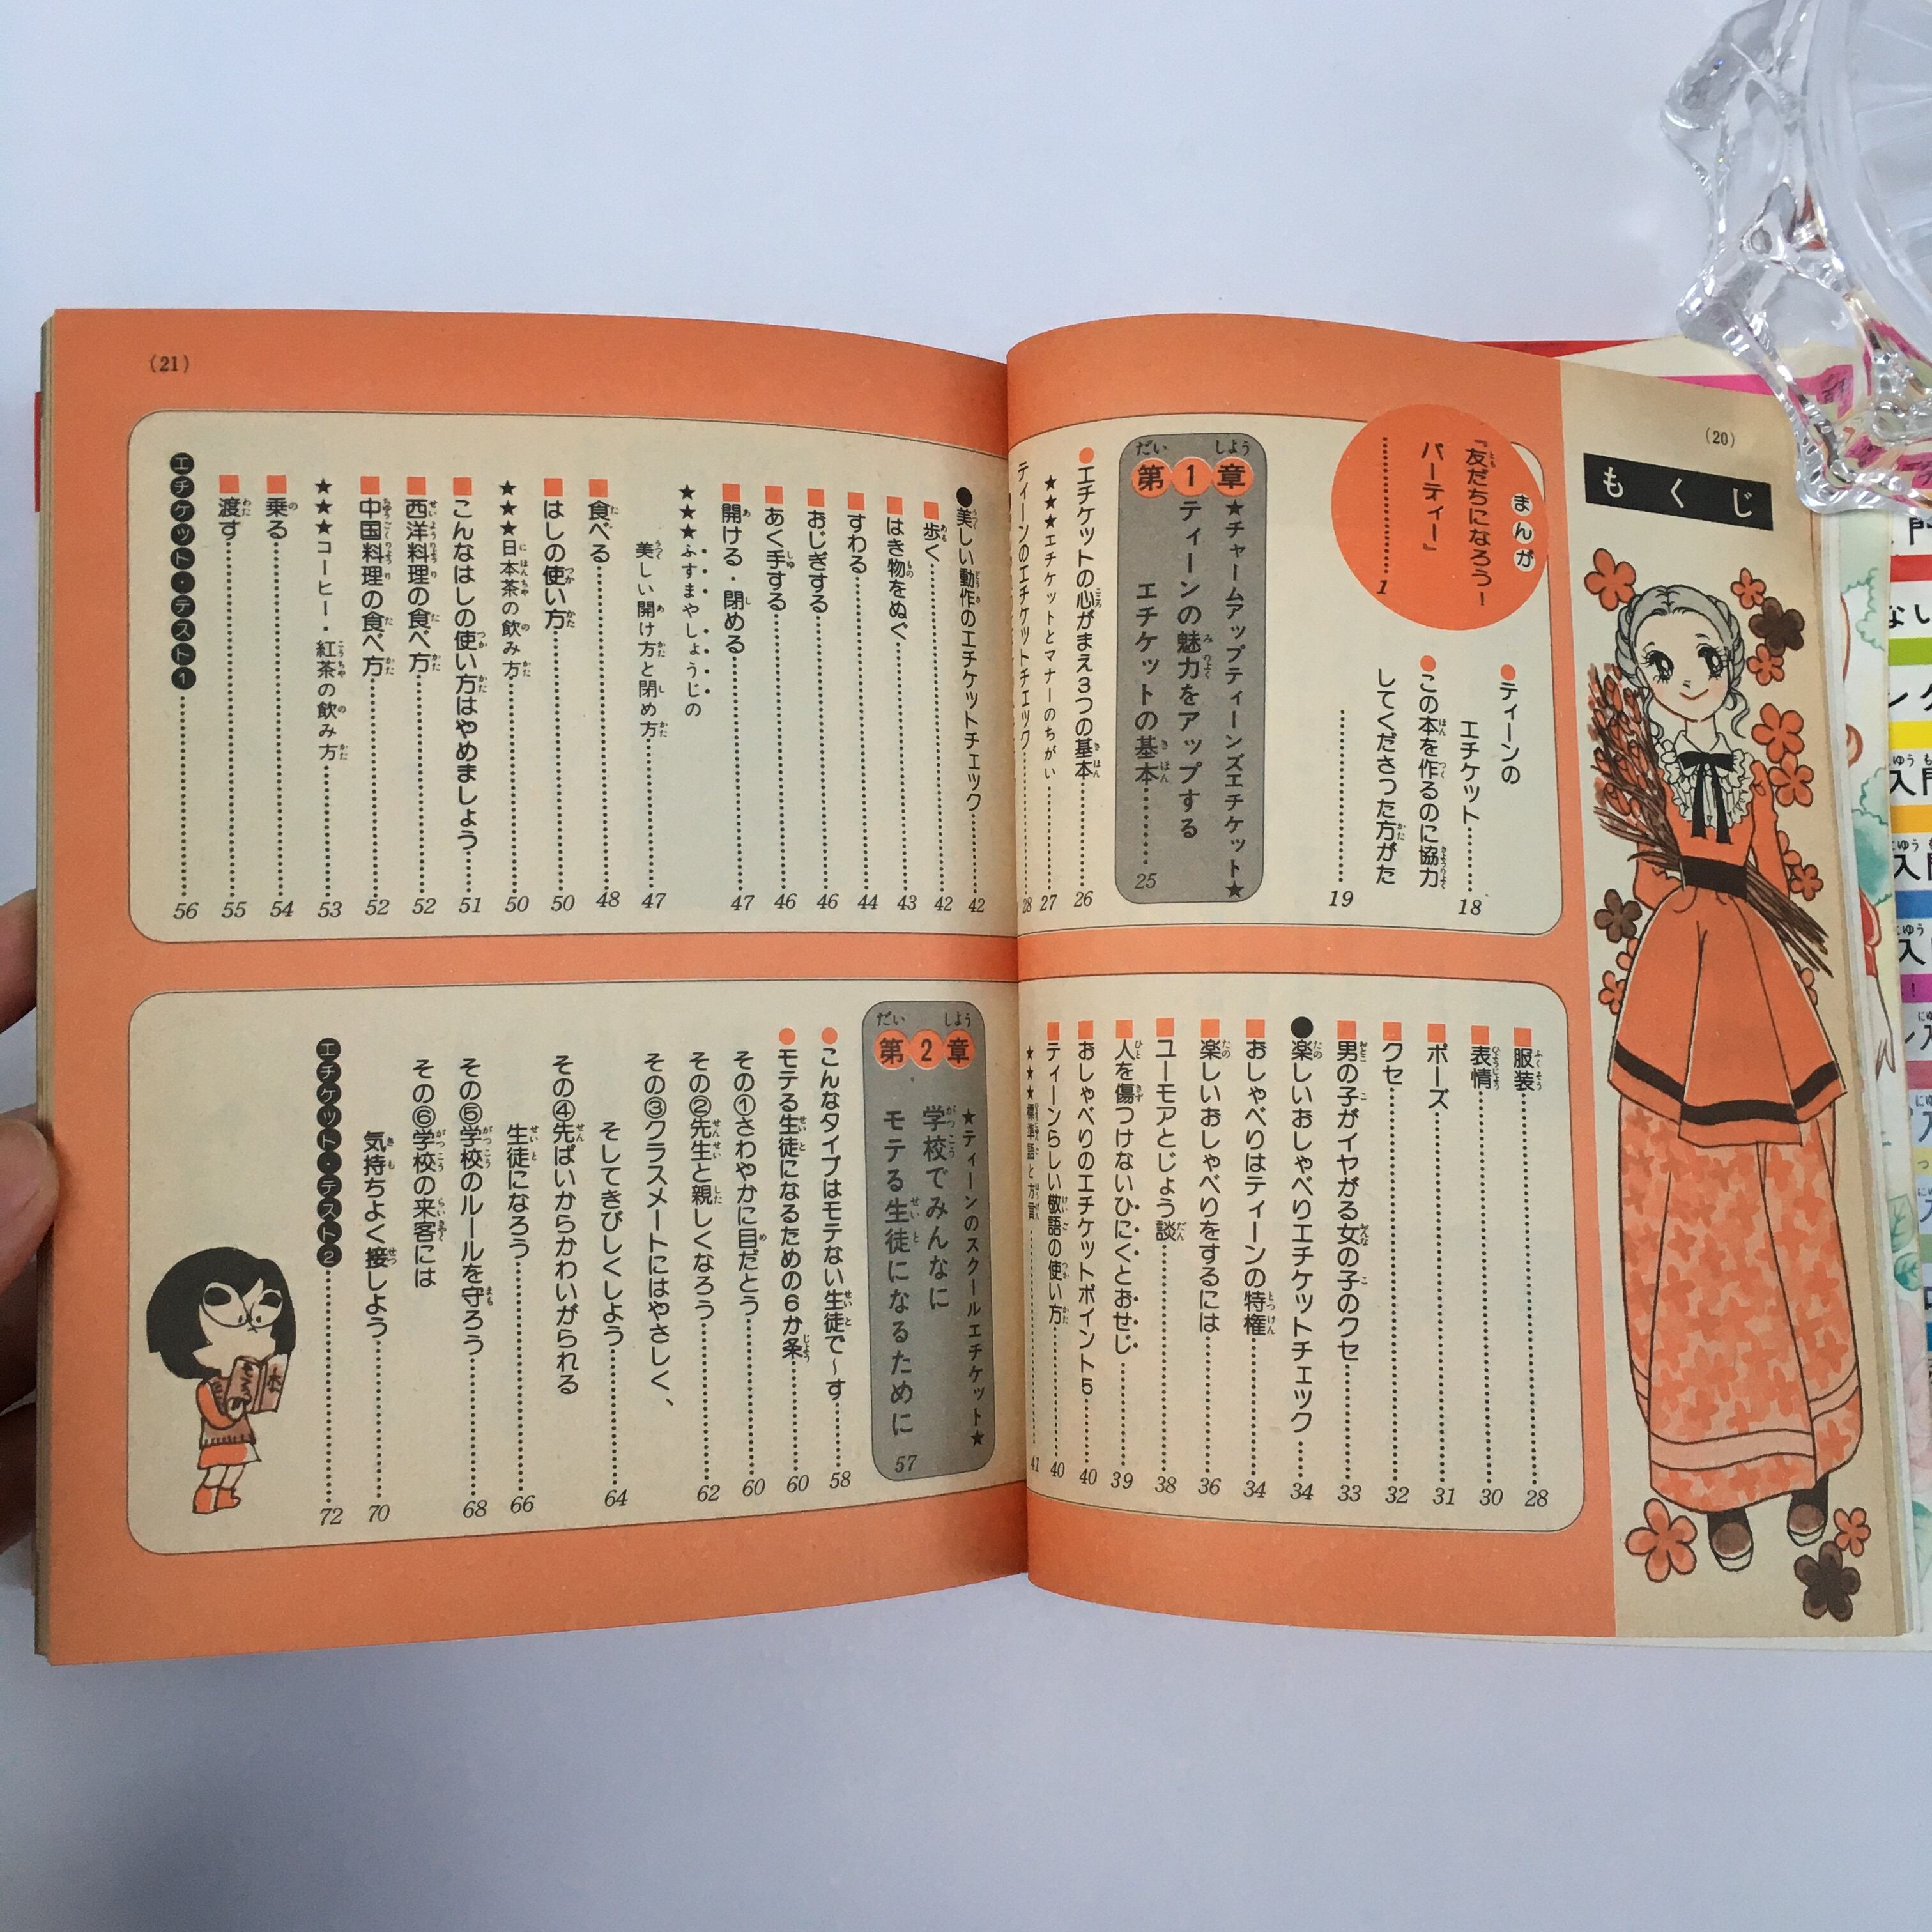 (20)
もくじ
まんが
『友だちになろうー
パーティー』
1
●ティーンの
エチケット 18
●この本を作るのに協力
してくださった方がた
19
第1章
★チャームアップティーンズエチケット★
ティーンの魅力をアップする
エチケットの基本 25
●エチケットの心がまえ3つの基本 26
★★★エチケットとマナーのちがい 27
ティーンのエチケットチェック 28
■服装 28
■表情 30
■ポーズ 31
■クセ 32
■男の子がイヤがる女の子のクセ 33
●楽しいおしゃべりエチケットチェック 34
■おしゃべりはティーンの特権 34
■楽しいおしゃべりをするには 36
■ユーモアとじょう談 38
■人を傷つけないひにくとおせじ 39
■おしゃべりのエチケットポイント5 40
■ティーンらしい敬語の使い方 40
★★★標準語と方言 41
(21)
●美しい動作のエチケットチェック 42
■歩く 42
■はき物をぬぐ 43
■すわる 44
■おじぎする 46
■あく手する 46
■開ける・閉める 47
★★★ふすまやしょうじの
美しい開け方と閉め方 47
■食べる 48
■はしの使い方 50
★★★日本茶の飲み方 50
■こんなはしの使い方はやめましょう 51
■西洋料理の食べ方 52
■中国料理の食べ方 52
★★★コーヒー・紅茶の飲み方 53
■乗る 54
■渡す 55
エチケット・テスト1 56
第2章
★ティーンのスクールエチケット★
学校でみんなに
モテる生徒になるために 57
●こんなタイプはモテない生徒で〜す 58
●モテる生徒になるための6か条 60
その①さわやかに目だとう 60
その②先生と親しくなろう 62
その③クラスメートにはやさしく、
そしてきびしくしよう 64
その④先ぱいからかわいがられる
生徒になろう 66
その⑤学校のルールを守ろう 68
その⑥学校の来客には
気持ちよく接しよう 70
エチケット・テスト2 72